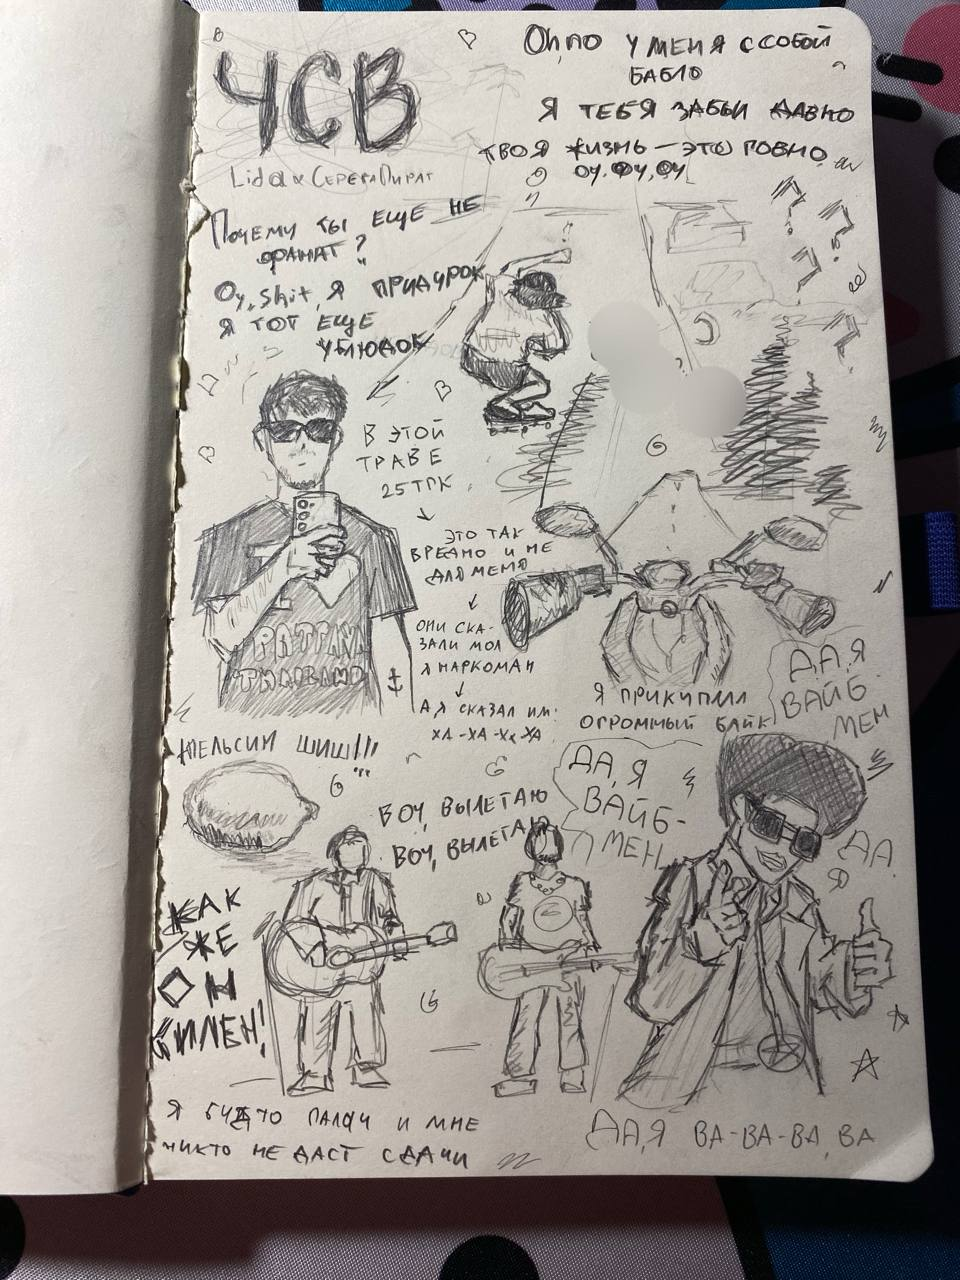 ЧСВ
Lida & СерегаПират
Oh, no у меня с собой
бабло
Я тебя забыл давно
твоя жизнь — это говно
оу, оу, оу
Почему ты еще не
фанат?
Oy, shit, я придурок
Я тот еще
ублюдок
В этой
траве
25 ТГК
это так
вредно и не
для меня
они ска-
зали мол
я наркоман
А я сказал им:
ха-ха-ха ха
PATTAYA
THAILAND
Я прикупил
огромный байк
Да, я
вайб-
мен
Апельсин шиш!!!
Воу, вылетаю
Воу, вылетаю
Да, я
вайб-
мен
Да,
я
Как
же
он
силен!
Я будто палач и мне
никто не даст сдачи
Да, я ва-ва-ва, ва